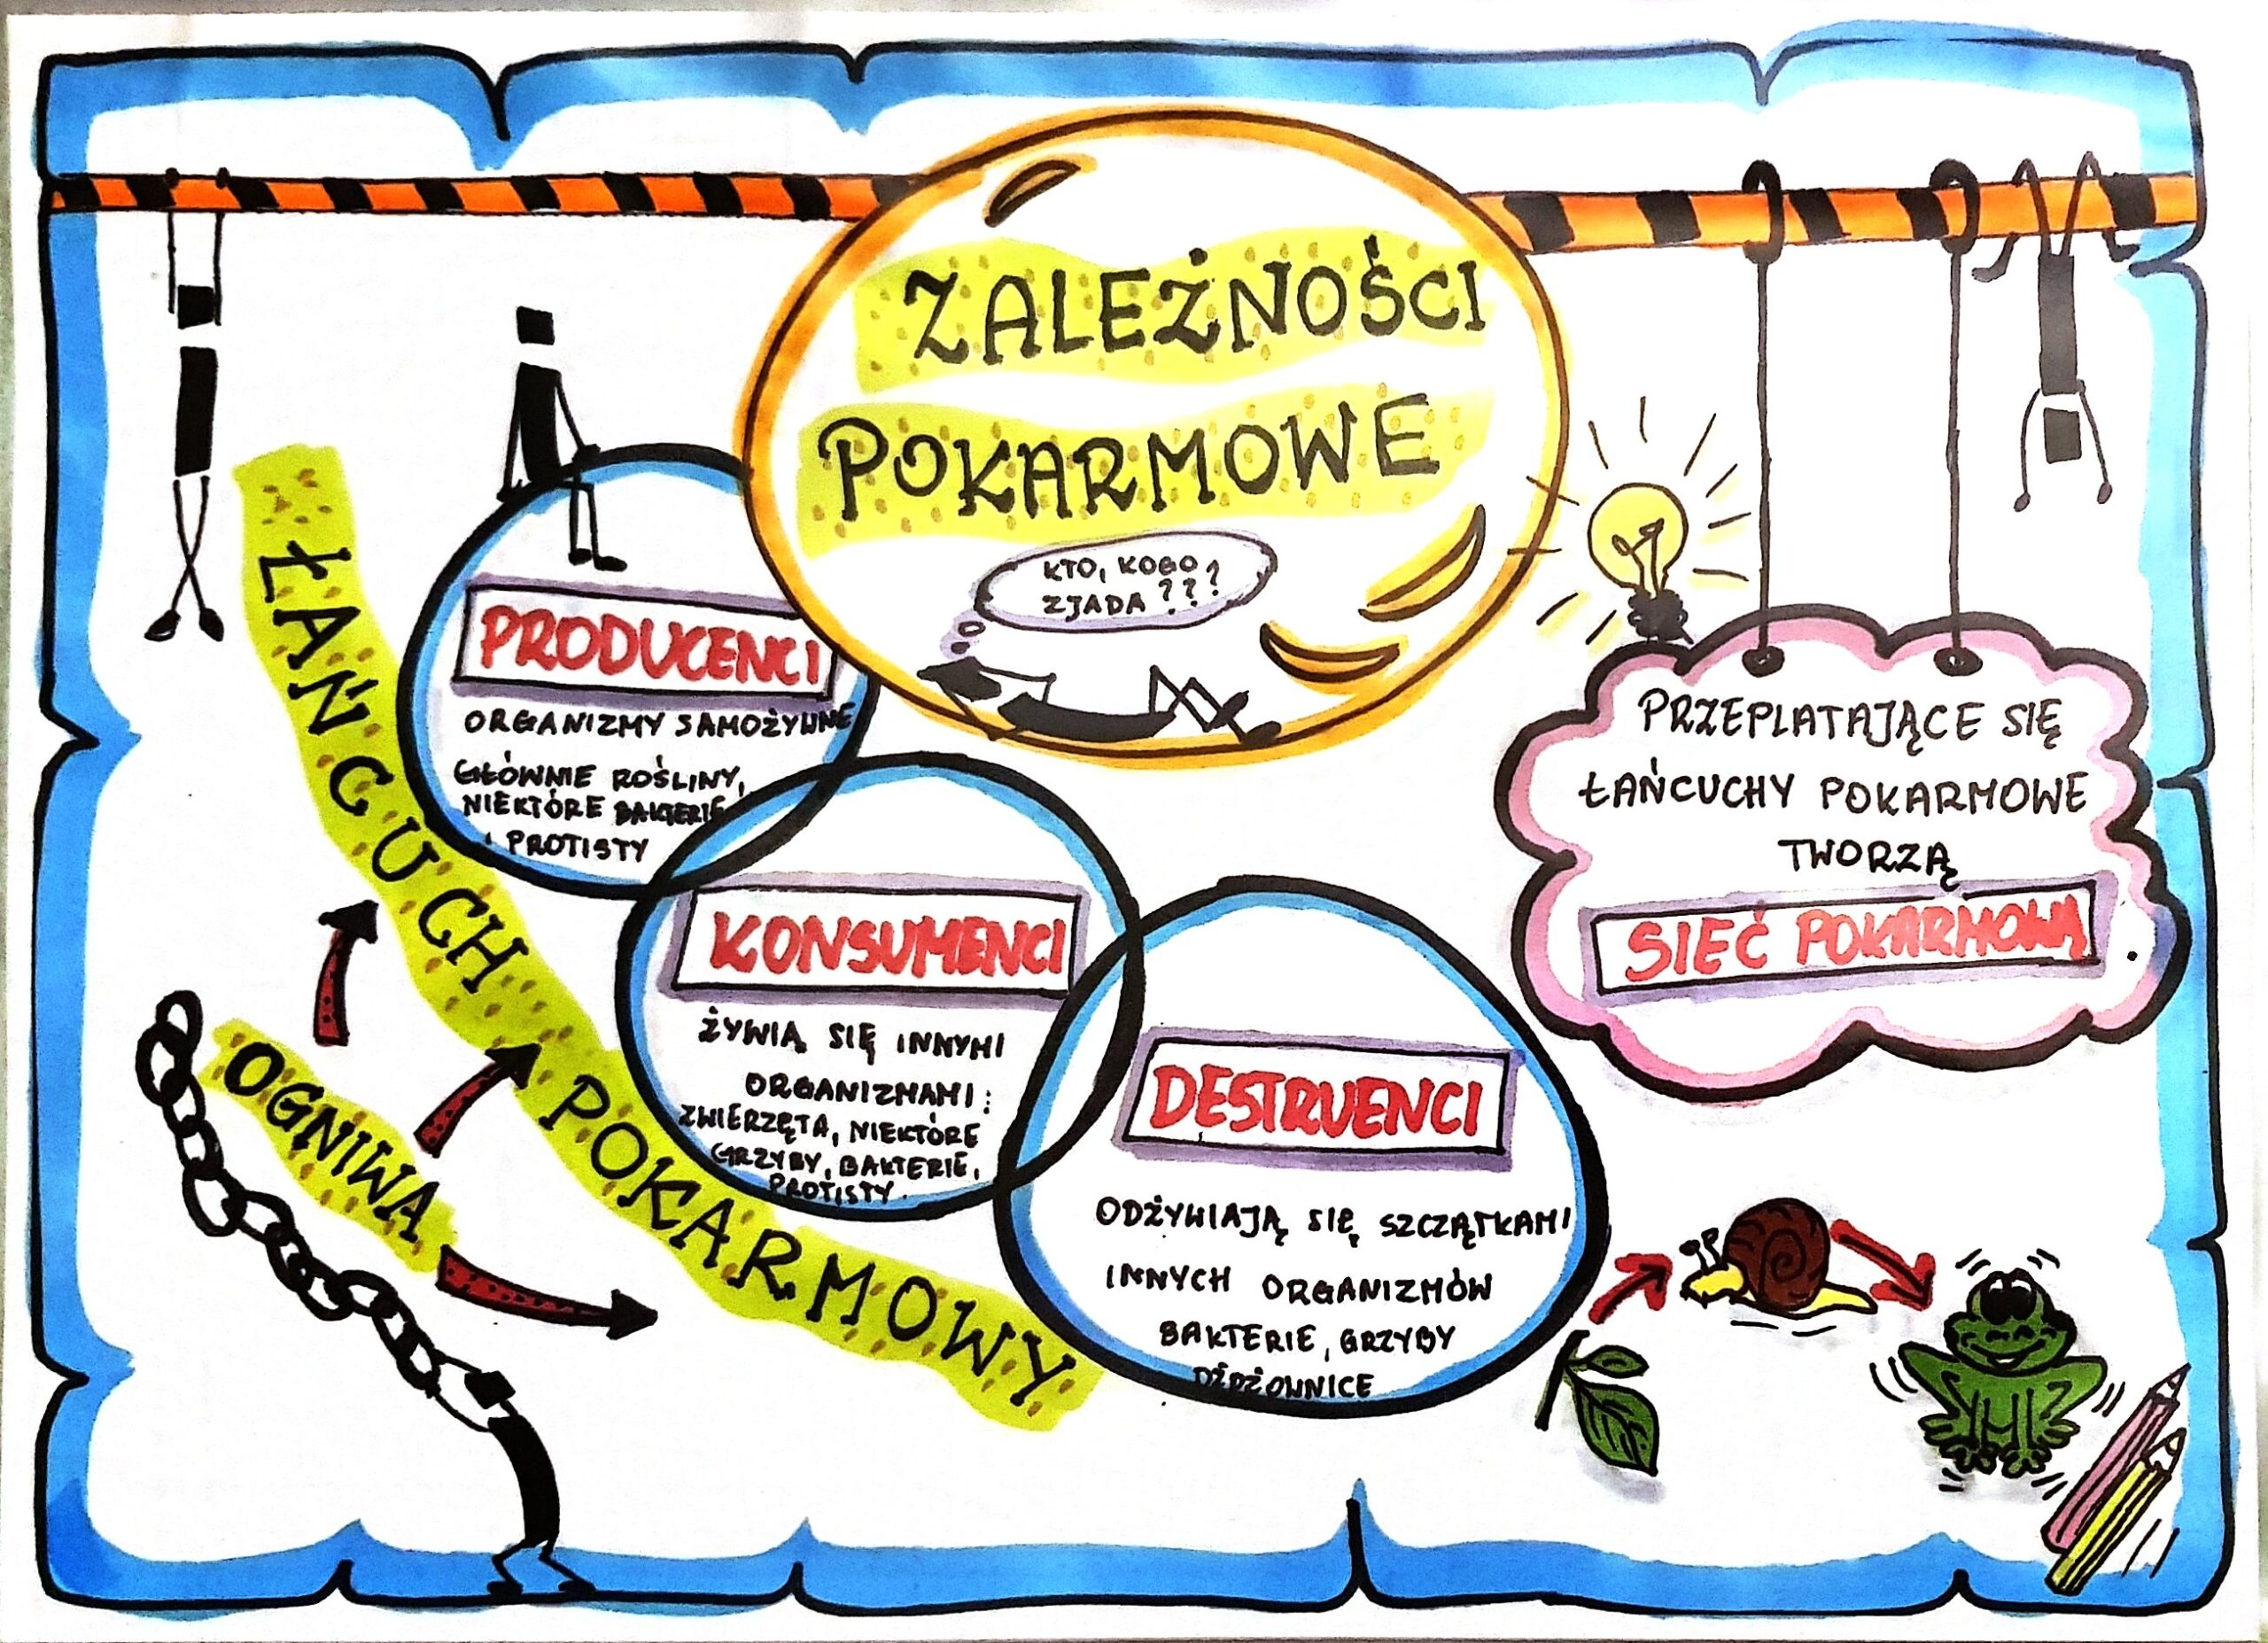 ZALEŻNOŚCI
POKARMOWE
KTO, KOGO
ZJADA ????
ŁAŃCUCH POKARMOWY
OGNIWA
PRODUCENCI
ORGANIZMY SAMOŻYWNE
GŁÓWNIE ROŚLINY,
NIEKTÓRE BAKTERIE
I PROTISTY
KONSUMENCI
ŻYWIĄ SIĘ INNYMI
ORGANIZMAMI:
ZWIERZĘTA, NIEKTÓRE
GRZYBY, BAKTERIE,
PROTISTY.
DESTRUENCI
ODŻYWIAJĄ SIĘ SZCZĄTKAMI
INNYCH ORGANIZMÓW
BAKTERIE, GRZYBY
DŻDŻOWNICE
PRZEPLATAJĄCE SIĘ
ŁAŃCUCHY POKARMOWE
TWORZĄ
SIEĆ POKARMOWĄ.